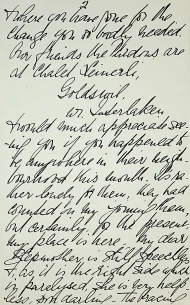 2
where you have gone for the
change you so badly needed.
Our friends the Hudons are
at Chalet Leinerli,
Goldswil,
nr. Interlaken
& would much appreciate see-
ing you if you happened to
be anywhere in their neigh-
bourhood this month. It's ra-
ther lonely for them, they had
counted on my joining them,
but certainly, for the present,
my place is here. My dear
Stepmother is still speechless
&, as it is the right side which
is paralysed, she is very help-
less, our darling. The brain